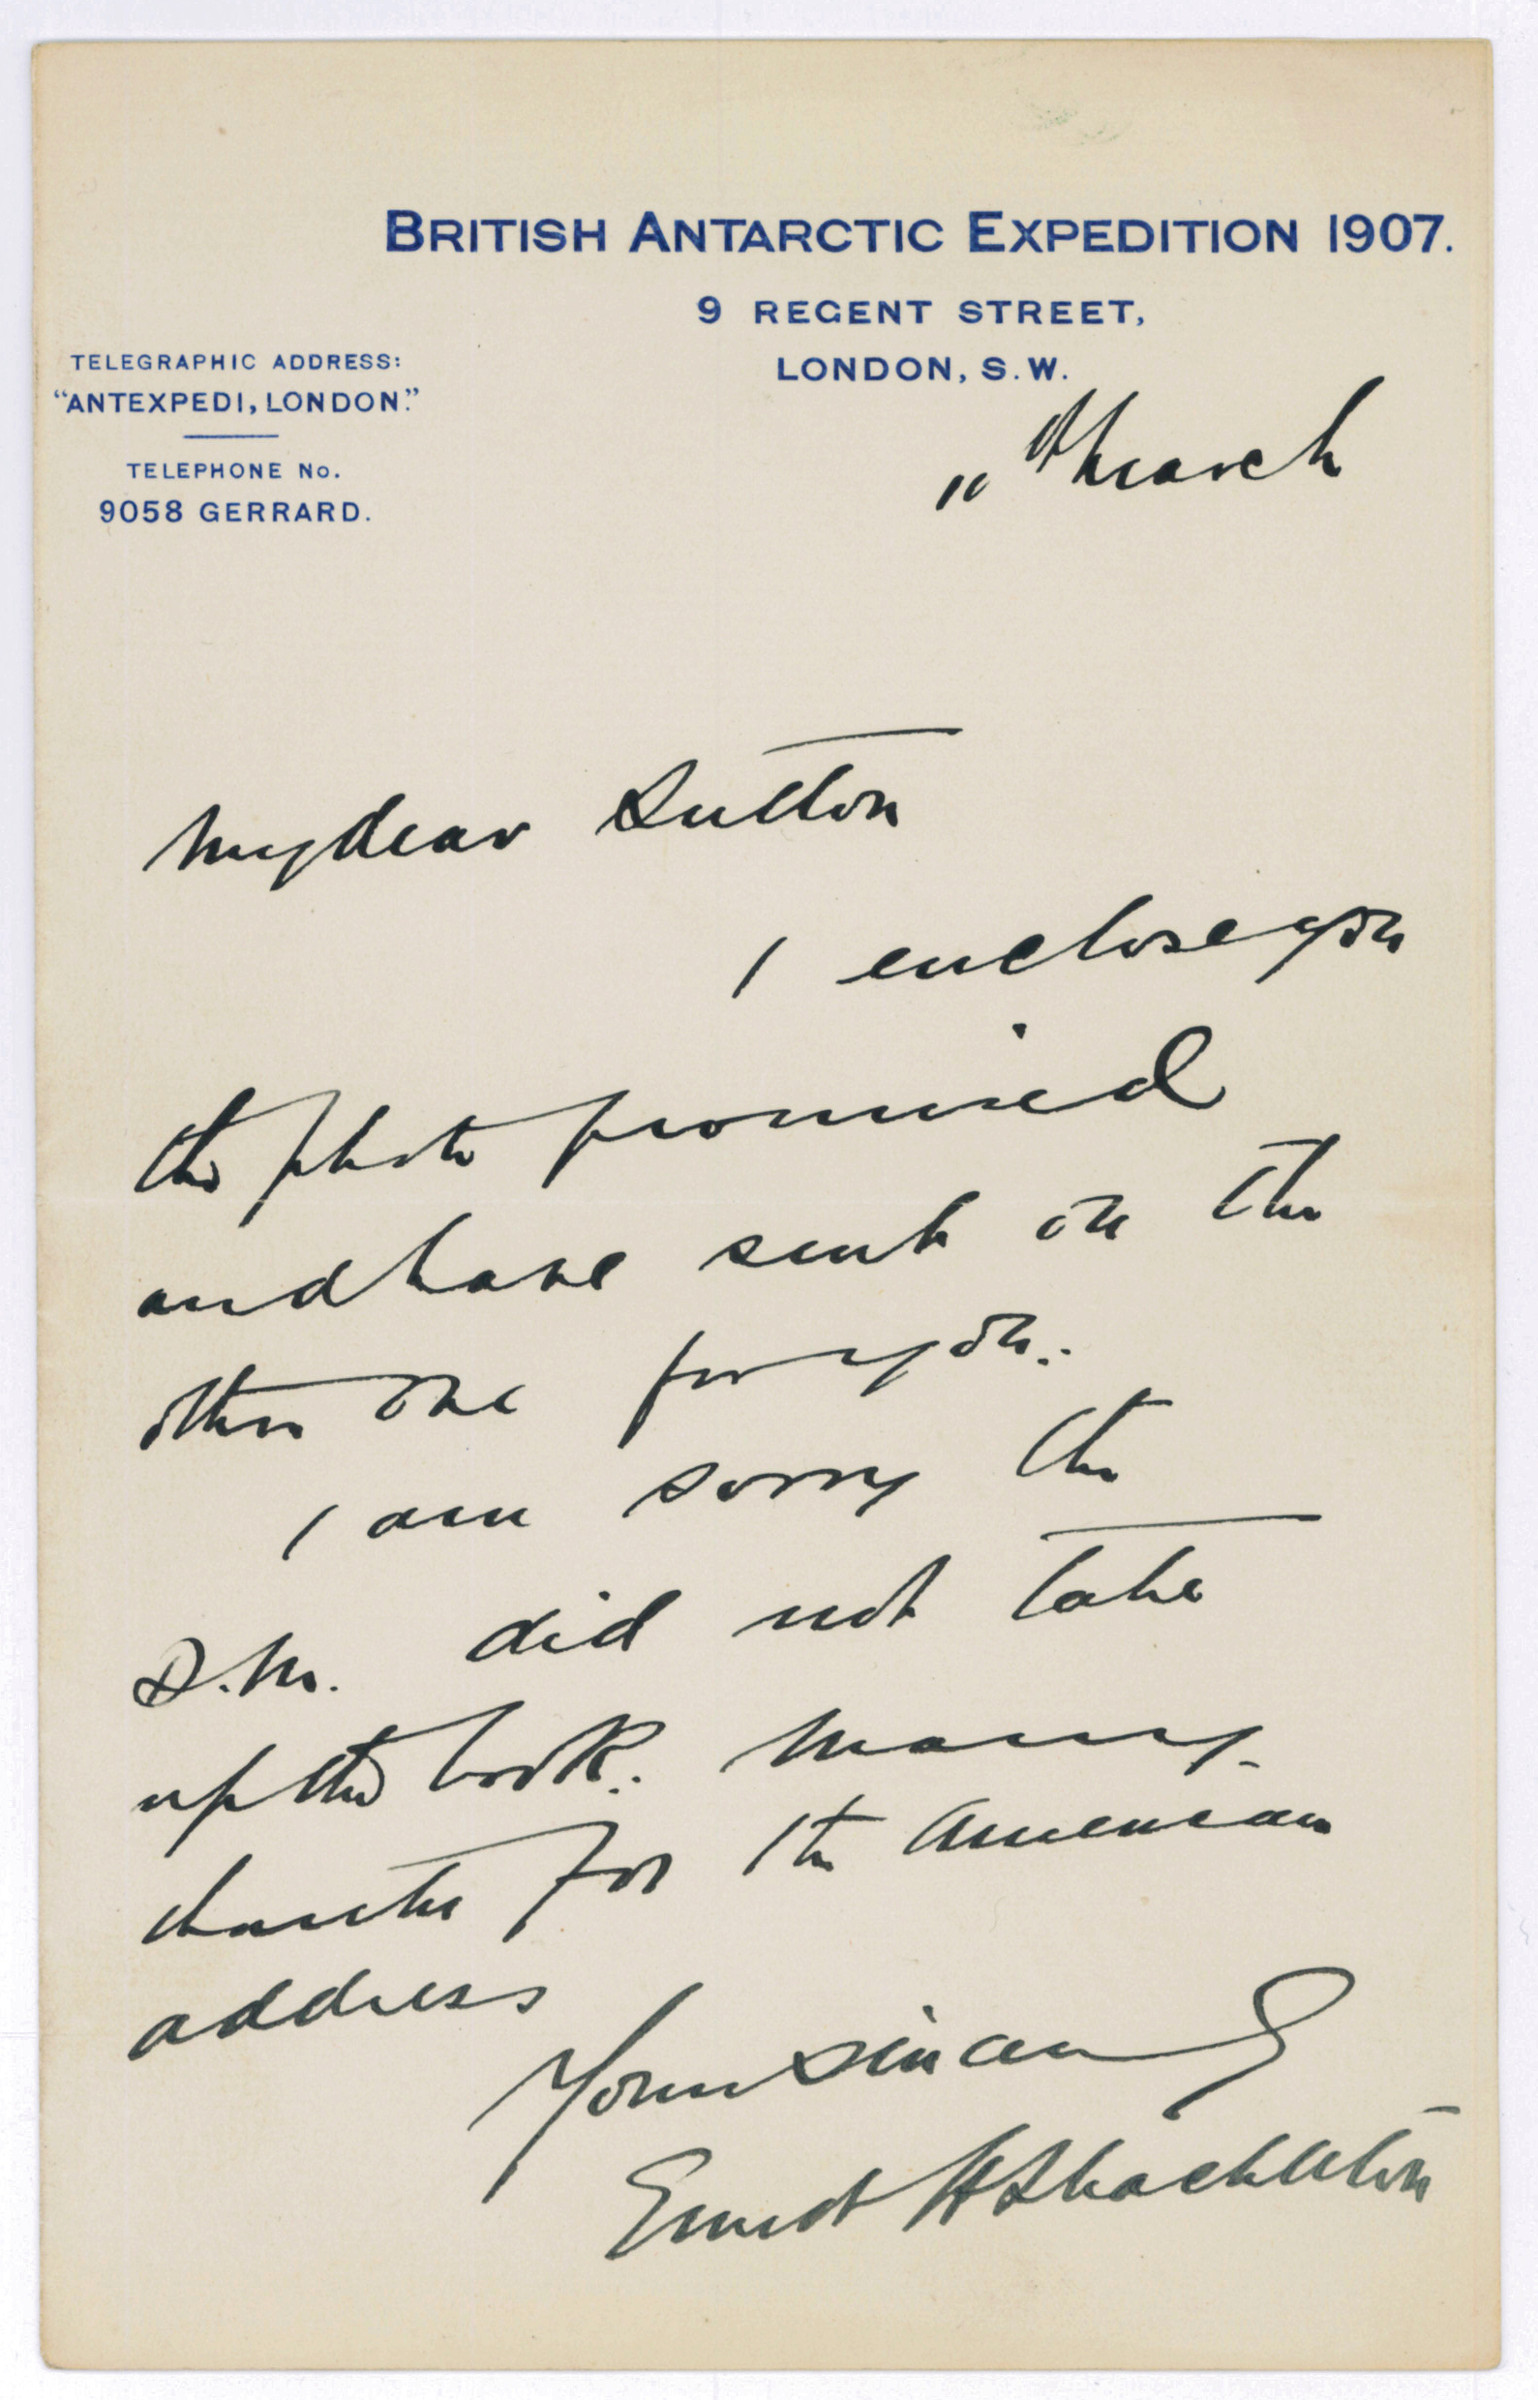 BRITISH ANTARCTIC EXPEDITION 1907.
9 REGENT STREET,
LONDON, S.W.
TELEGRAPHIC ADDRESS:
"ANTEXPEDI, LONDON."
TELEPHONE No.
9058 GERRARD.
11th March
My dear Sutton
I enclose you
the photo promised
and have sent on the
other one for you.
I am sorry the
S.M. did not take
up the book. Many
thanks for the American
address
Yours sincerely
Ernest H Shackleton